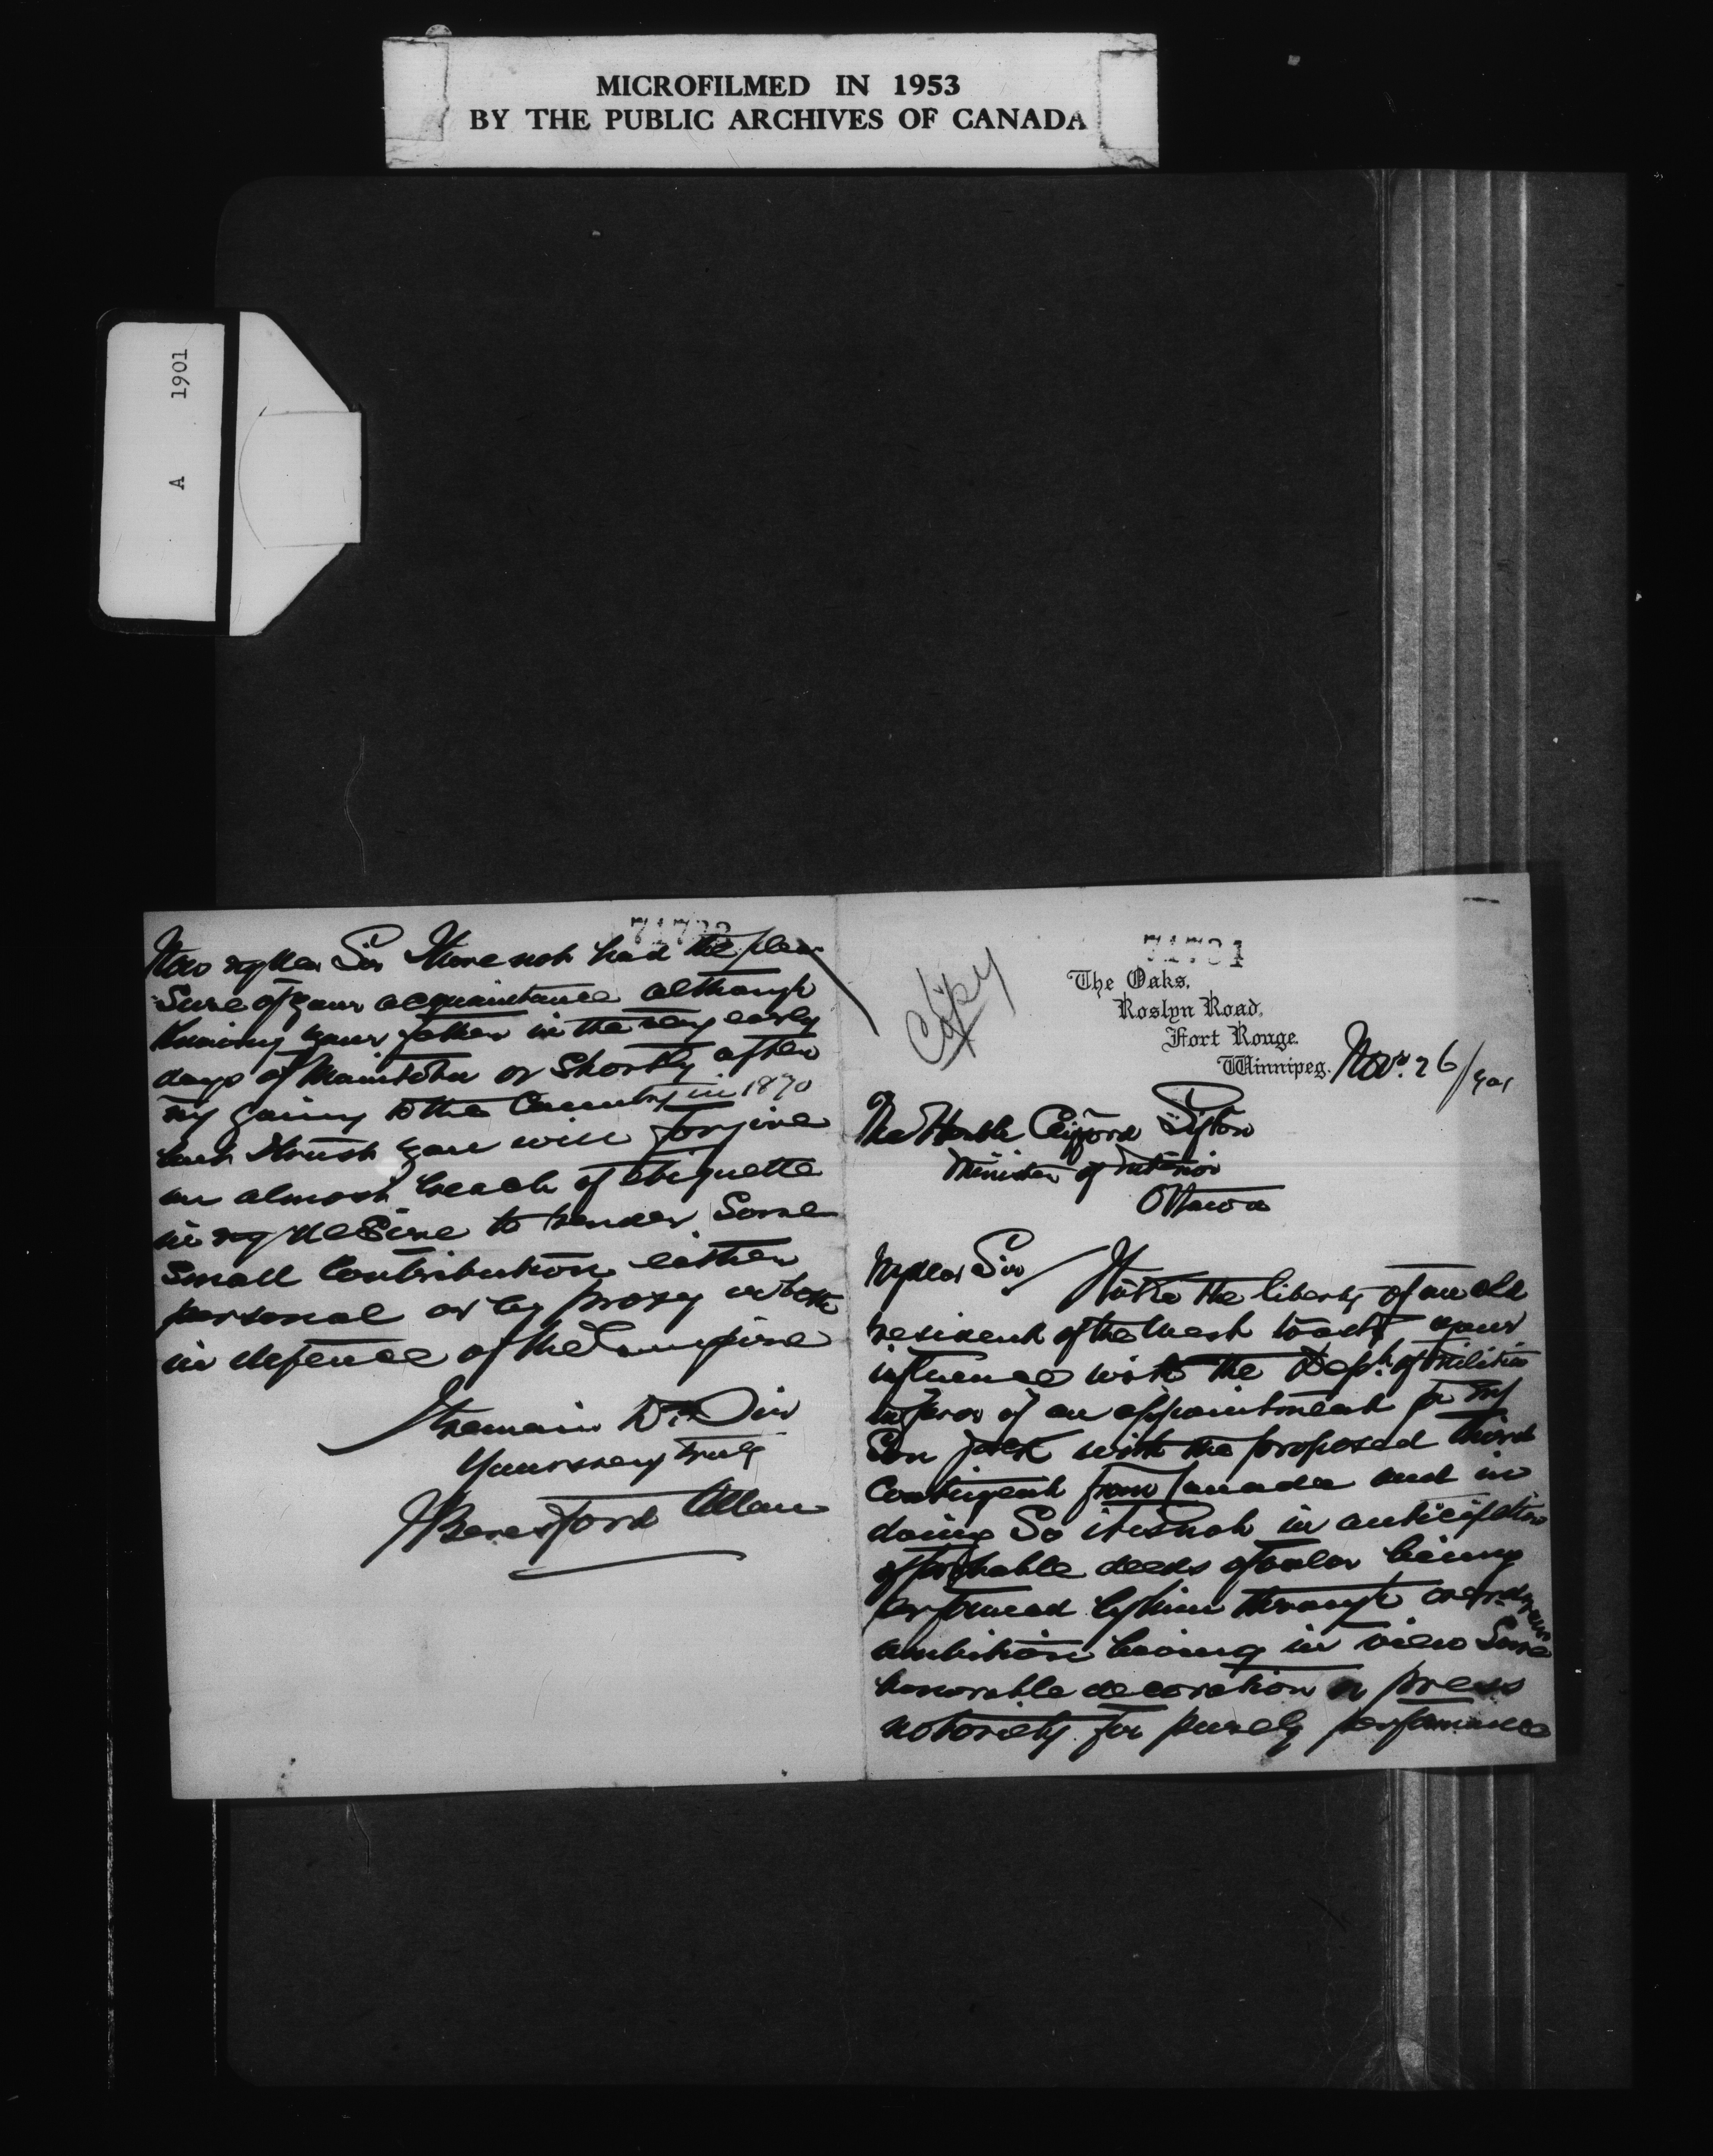 MICROFILMED IN 1953
BY THE PUBLIC ARCHIVES OF CANADA
A 1901
Now my dear Sir I have not had the plea
sure of your acquaintance although
knowing your father in the very early
days of Manitoba or shortly after
my going to the Country in 1870
but I trust you will forgive
an almost breach of etiquette
in my desire to render some
small contribution either
personal or by proxy or both
in defence of the Empire
I remain Dr Sir
Yours very truly
J Beresford Allan
Copy
71731
The Oaks,
Roslyn Road,
Fort Rouge.
Winnipeg. Nov. 26/1901
The Honble Clifford Sifton
Minister of Interior
Ottawa
My dear Sir
I take the liberty of an old
resident of the West to ask your
influence with the Dept. of Militia
in favor of an appointment for my
Son Jack with the proposed third
Contingent from Canada and in
doing So it is not in anticipation
of probable deeds of valor being
performed by him through overdrawn
ambition having in view Some
honorable decoration or press
notoriety for purely performance